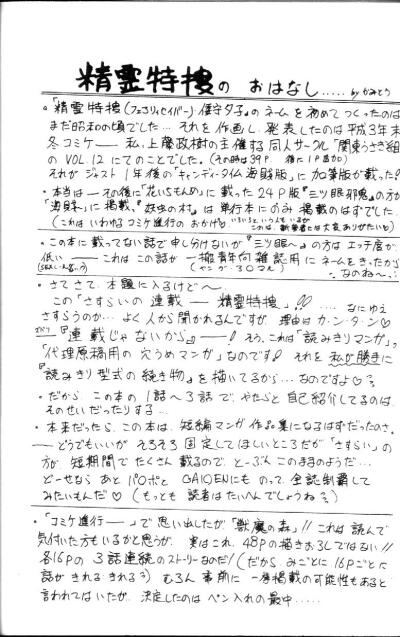 精霊特捜の おはなし.....by かみとう
・「精霊特捜(フェアリィセイバー)保守夕子」のネームを初めてつくったのは
まだ昭和の頃でした… それを作画し、発表したのは平成3年末
冬コミケ── 私、上藤政樹の主催する同人サークル「関東うさぎ組」
のVOL.12にてのことでした。(その時は39P 後に1P追加)
それがジャスト1年後の「キャンディータイム海賊版」に加筆版が載った!
・本当は── その後に「花いちもんめ」に載った24P版『三ツ眼邪鬼』の方が
「海賊」に掲載、『妖虫の村』は単行本にのみ掲載のはずでした。
(これはいわゆるコミケ進行のおかげ いろいろいう人もいるが これは、執筆者には大変ありがたいと)
・この本に載ってない話で申し分けないが『三ツ眼〜』の方はエッチ度が
低い── これはこの話が一般青年向雑誌用にネームをきったから
なのね〜
・さてさて、本題に入るけど〜
この「さすらいの連載── 精霊特捜」!! .... なにゆえ
さすらうのか… よく人から聞かれるんですが 理由はカ・ン・タ・ン♡
『連載じゃないから』──! そう、これは「読みきりマンガ」、
「代理原稿用の穴うめマンガ」なのです! それを私が勝手に
『読みきり型式の続き物』を描いてるから…なのですよ♡
・だから この本の1話〜3話で、やたらと自己紹介してるのは、
そのせいだったりする…
・本来だったら、この本は、短編マンガ作品集になるはずだったのさ。
── どうでもいいが そろそろ固定してほしいところだが「さすらい」の
方が、短期間でたくさん載るので、と〜ぶんこのままのようだ…
ど〜せなら あとパロポと GAIDENにものって、全誌制覇して
みたいもんだ♡ (もっとも読者はたいへんでしょうね?)
・「コミケ進行──」で思い出したが「獣魔の森」!! これは読んで
気付いた方もいるかと思うが、実はこれ、48Pの描きおろしではない!!
各16Pの3話連続のストーリーなのだ!(だからみごとに16Pごとに
話がきれるきれる?) むろん事前に一挙掲載の可能性もあると
言われてはいたが、決定したのはペン入れの最中……